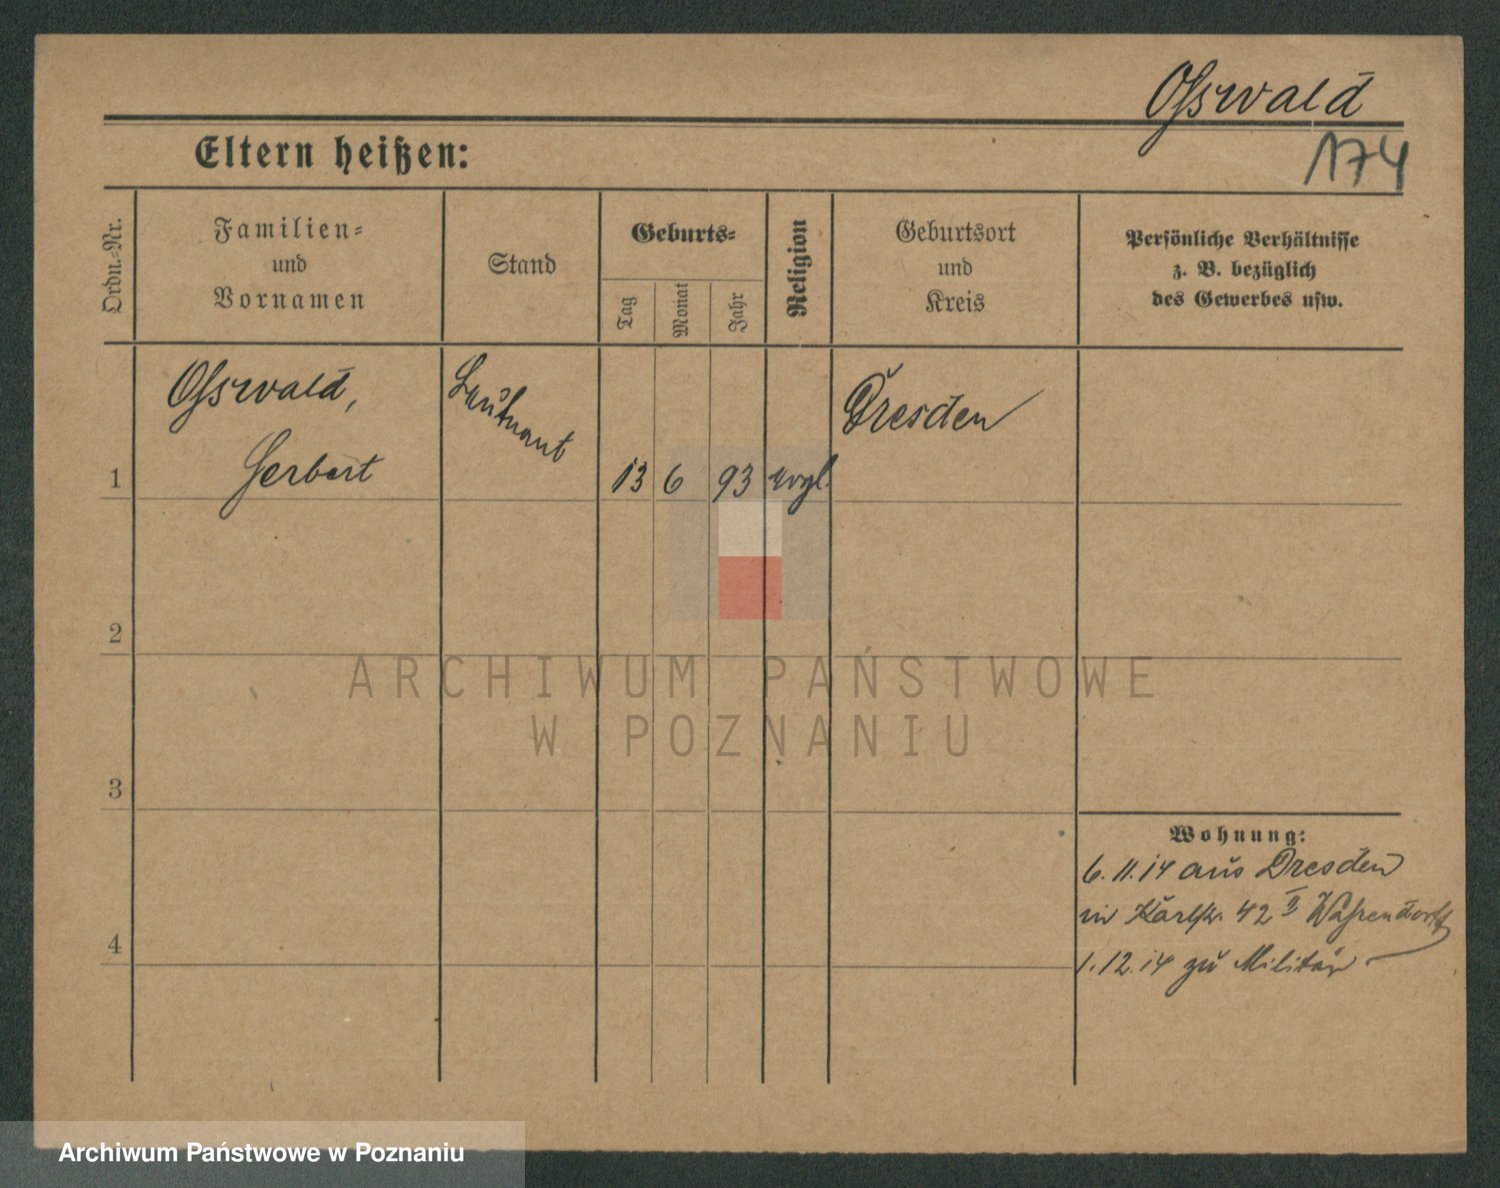 Osswald
174
Eltern heißen:
Ordn.-Nr.
Familien-
und
Vornamen
Stand
Geburts-
Tag
Monat
Jahr
Religion
Geburtsort
und
Kreis
Persönliche Verhältnisse
z. B. bezüglich
des Gewerbes usw.
1
Osswald,
Herbert
Leutnant
13
6
93
evgl.
Dresden
2
3
4
Wohnung:
6.11.14 aus Dresden
in Karlstr. 42 II
1.12.14 zu Militär
ARCHIWUM PAŃSTWOWE
W POZNANIU
Archiwum Państwowe w Poznaniu